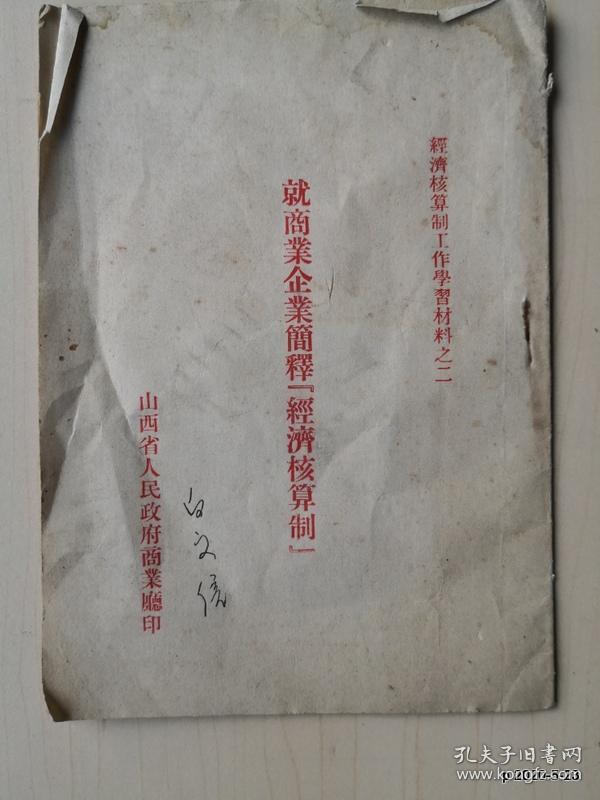 經濟核算制工作學習材料之二
就商業企業簡釋『經濟核算制』
山西省人民政府商業廳印
孔夫子旧书网